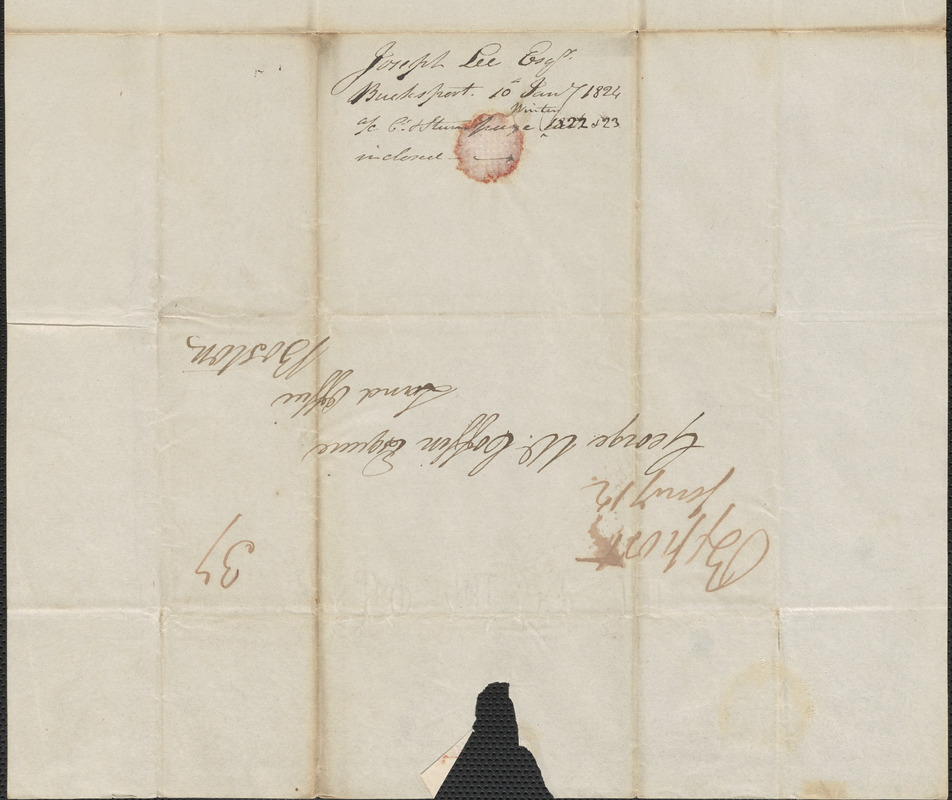 Joseph Lee Esqr.
Bucksport. 10th Jany 1824
Winter
a/c Ct. & Stumpage 1822 & 23
inclosed
Bksport
Jany 12
37
George W. Coffin Esquire
Land Office
Boston